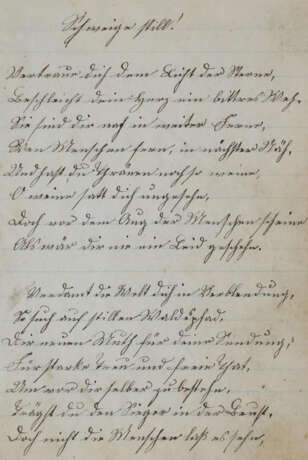 Schweige still!
Vertraue dich dem Licht der Sterne,
Beschleicht dein Herz ein bittres Weh,
Sie sind dir nah in weiter Ferne,
Wenn Menschen fern, in nächster Näh,
Und hast du Thränen noch so weine,
O weine satt dich ungesehn,
Doch vor dem Aug der Menschen scheine
Als wär dir nie ein Leid geschehn.
Verdamt die Welt dich in Verblendung,
So such auf stillen Waldespfad,
Dir neuen Muth für deine Sendung,
Für starke Treu und freie That,
Um vor dir selber zu bestehn,
Trägst du den Sieger in der Brust,
Doch nicht die Menschen laß es sehn,